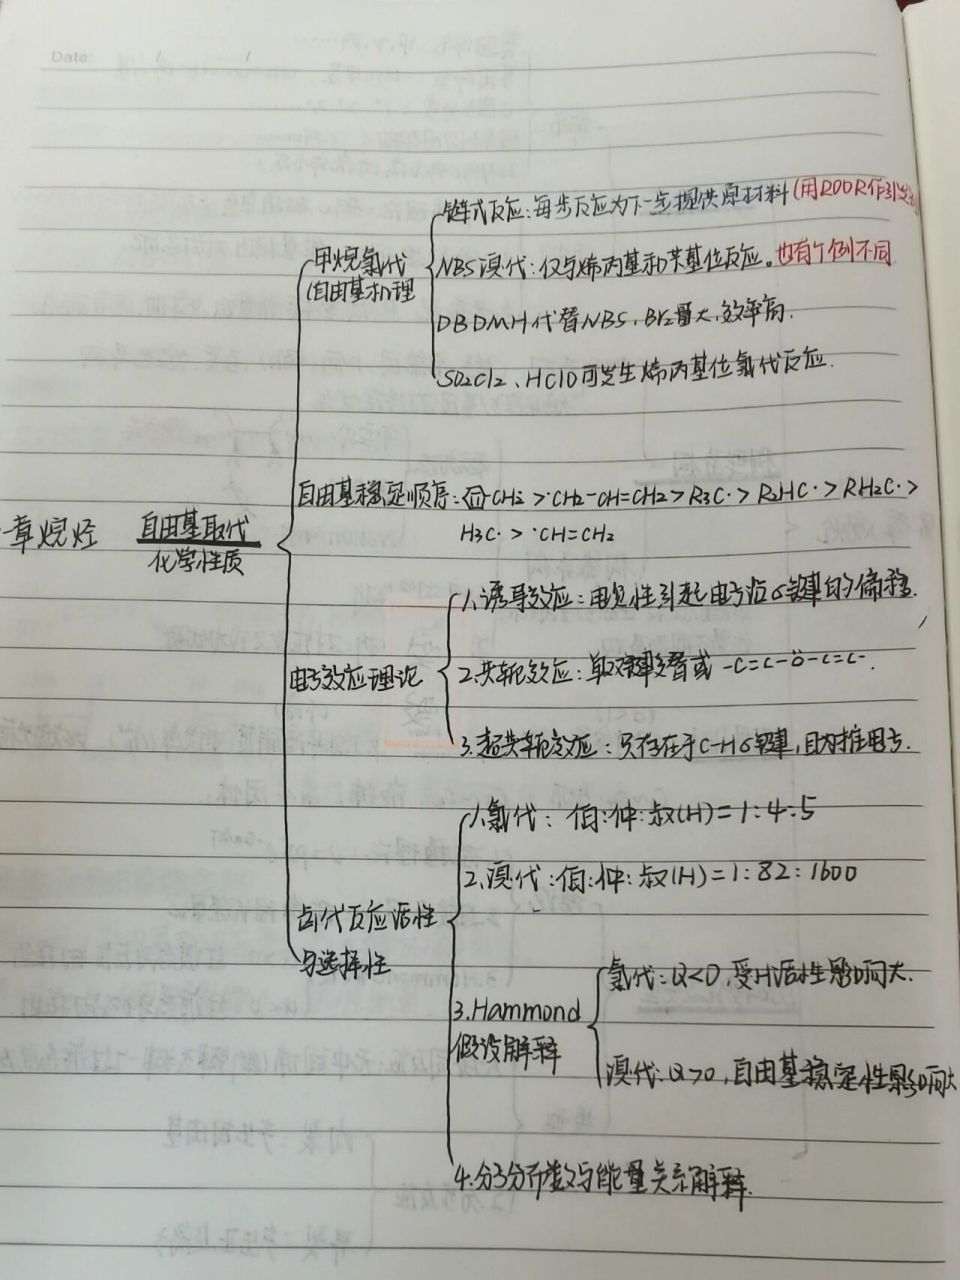 Date: / /
链式反应:每步反应为下一步提供原材料(用ROOR作引发
甲烷氯代
(自由基机理
NBS溴代:仅与烯丙基和苄基位反应。也有个例不同
DBDMH代替NBS,Br2量大,效率高.
SO2Cl2、HClO可发生烯丙基位氯代反应.
自由基稳定顺序: -CH2 > ·CH2-CH=CH2 > R3C· > R2HC· > RH2C· >
H3C· > ·CH=CH2
章烷烃 自由基取代
化学性质
1.诱导效应:电负性引起电子沿σ键的偏移.
电子效应理论
2.共轭效应:单双键交替或 -C=C-Ö-C=C-.
3.超共轭效应:只存在于C-Hσ键,且为推电子.
1.氯代: 伯:仲:叔(H)=1:4:5
2.溴代:伯:仲:叔(H)=1:82:1600
卤代反应活性
与选择性
3.Hammond
假设解释
氯代:Q<0,受H活性影响大.
溴代:Q>0,自由基稳定性影响大
4.分子分布数与能量关系解释.